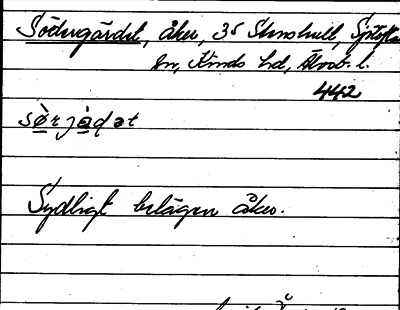 Södergärdet, åker, 35 Stenshult, Sjötofta
sn, Kinds hd, Älvsb. l.
442
sö̀rjàdət
Sydligt belägen åker.